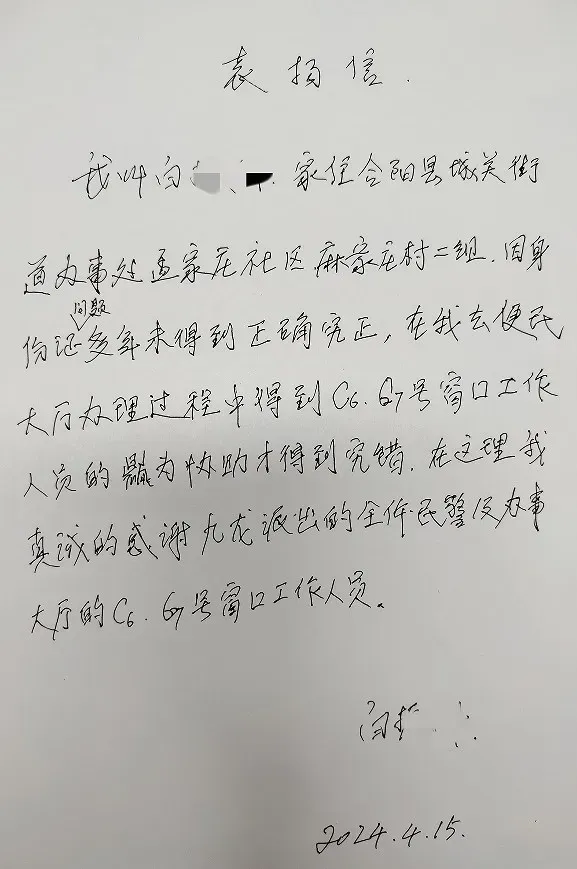 表扬信.
我叫向 家住合阳县城关街
道办事处孟家庄社区麻家庄村二组.因身
问题
份证多年未得到正确究正,在我去便民
大厅办理过程中得到C6.G7号窗口工作
人员的鼎力协助才得到究错.在这理我
真诚的感谢九龙派出的全体民警及办事
大厅的C6.G7号窗口工作人员。
2024.4.15.